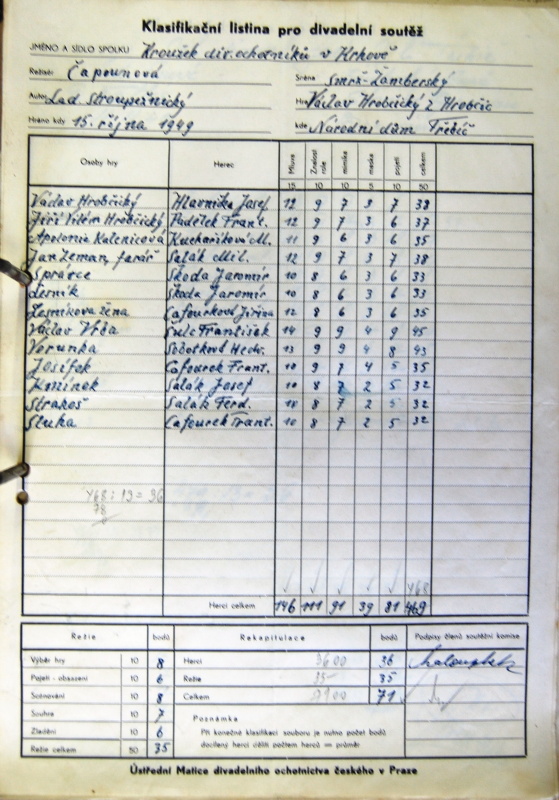 Klasifikační listina pro divadelní soutěž
JMÉNO A SÍDLO SPOLKU Kroužek div. ochotníků v Hrkově
Režisér Čapounová
Scéna Smrž-Žamberský
Autor Lad. Stroupežnický
Hra Václav Hrobčický z Hrobčic
Hráno kdy 15. října 1949
kde Národní dům Třebíč
Osoby hry Herec Mluva Znalost role mimika maska pojetí celkem
15 10 10 5 10 50
Václav Hrobčický Hlavnička Josef 12 9 7 3 7 38
Jiří Vilém Hrobčický Padělek Frant. 12 9 7 3 6 37
Apolonia Kalenicová Kuchaříková M. 11 9 6 3 6 35
Jan Zeman, farář Salák Mil. 12 9 7 3 7 38
Správce Škoda Jaromír 10 8 6 3 6 33
Lesník Škoda Jaromír 10 8 6 3 6 33
Lesníkova žena Cafourková Jiřina 12 8 6 3 6 35
Václav Vrba Šulc František 14 9 9 4 9 45
Verunka Sobotková Hedv. 13 9 9 4 8 43
Josífek Cafourek Frant. 10 9 7 4 5 35
Kmínek Salák Josef 10 8 7 2 5 32
Strakoš Salák Ferd. 10 8 7 2 5 32
Sluka Cafourek Frant. 10 8 7 2 5 32
468 : 13 = 36
78
0
468
Herci celkem 146 111 91 39 81 469
Režie bodů Rekapitulace bodů Podpisy členů soutěžní komise
Výběr hry 10 8 Herci 3600 36
Pojetí - obsazení 10 6 Režie 35 35
Scénování 10 8 Celkem 7100 71
Souhra 10 7
Zladění 10 6
Režie celkem 50 35
Poznámka
Při konečné klasifikaci souboru je nutno počet bodů
docílený herci děliti počtem herců = průměr
Ústřední Matice divadelního ochotnictva českého v Praze